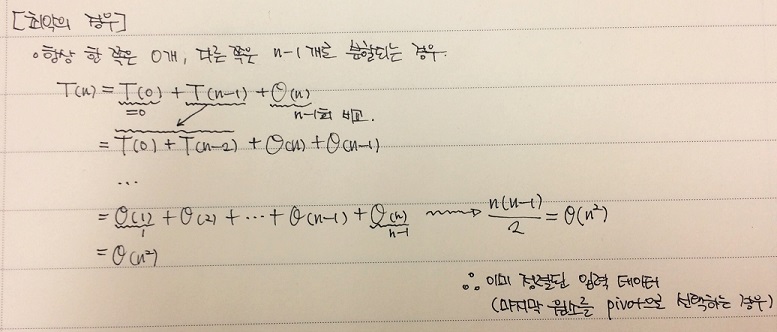 [최악의 경우]
• 항상 한 쪽은 0개, 다른 쪽은 n-1개로 분할되는 경우.
T(n) = T(0) + T(n-1) + Θ(n)
=0
n-1회 비교.
= T(0) + T(n-2) + Θ(n) + Θ(n-1)
...
= Θ(1) + Θ(2) + ... + Θ(n-1) + Θ(n) → n(n-1)/2 = Θ(n²)
1
n-1
= Θ(n²)
∴ 이미 정렬된 입력 데이터
(마지막 원소를 pivot으로 선택하는 경우)